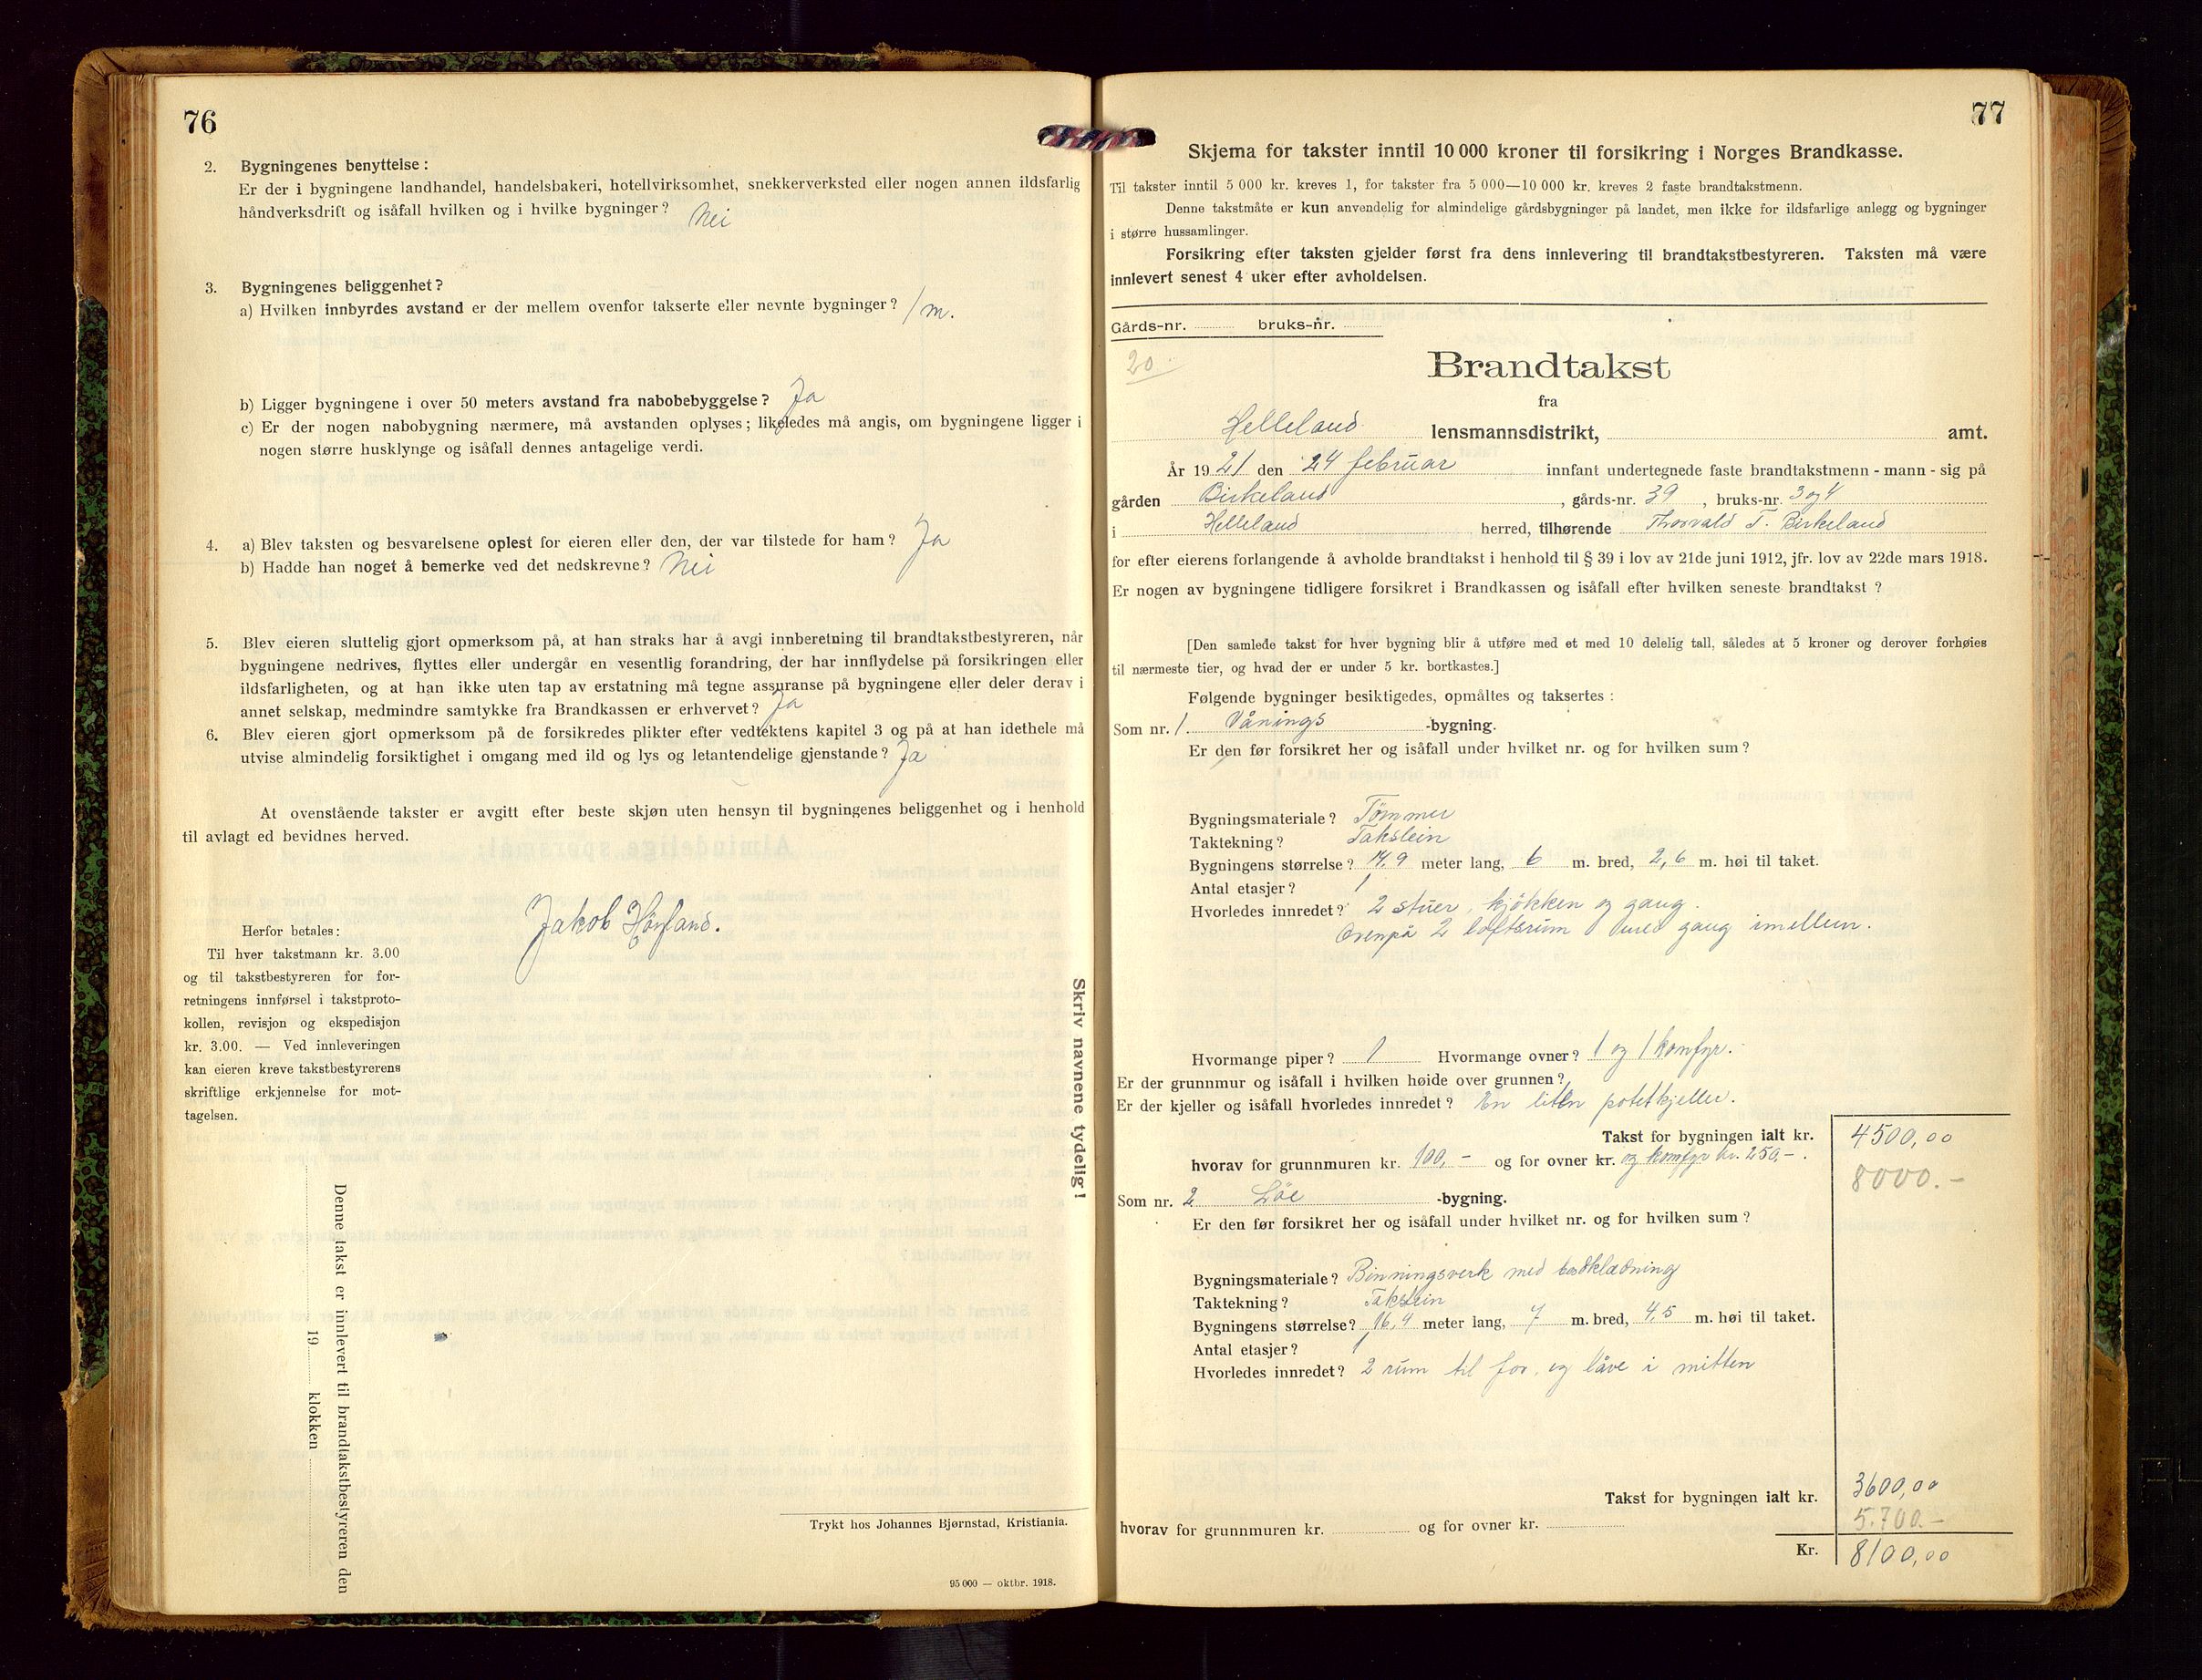 76
2. Bygningenes benyttelse:
Er der i bygningene landhandel, handelsbakeri, hotellvirksomhet, snekkerverksted eller nogen annen ildsfarlig
håndverksdrift og isåfall hvilken og i hvilke bygninger? Nei
3. Bygningenes beliggenhet?
a) Hvilken innbyrdes avstand er der mellem ovenfor takserte eller nevnte bygninger? 1 m.
b) Ligger bygningene i over 50 meters avstand fra nabobebyggelse? Ja
c) Er der nogen nabobygning nærmere, må avstanden oplyses; likeledes må angis, om bygningene ligger i
nogen større husklynge og isåfall dennes antagelige verdi.
4. a) Blev taksten og besvarelsene oplest for eieren eller den, der var tilstede for ham? Ja
b) Hadde han noget å bemerke ved det nedskrevne? Nei
5. Blev eieren sluttelig gjort opmerksom på, at han straks har å avgi innberetning til brandtakstbestyreren, når
bygningene nedrives, flyttes eller undergår en vesentlig forandring, der har innflydelse på forsikringen eller
ildsfarligheten, og at han ikke uten tap av erstatning må tegne assuranse på bygningene eller deler derav i
annet selskap, medmindre samtykke fra Brandkassen er erhvervet? Ja
6. Blev eieren gjort opmerksom på de forsikredes plikter efter vedtektens kapitel 3 og på at han idethele må
utvise almindelig forsiktighet i omgang med ild og lys og letantendelige gjenstande? Ja
At ovenstående takster er avgitt efter beste skjøn uten hensyn til bygningenes beliggenhet og i henhold
til avlagt ed bevidnes herved.
Jakob
Herfor betales:
Til hver takstmann kr. 3.00
og til takstbestyreren for for-
retningens innførsel i takstproto-
kollen, revisjon og ekspedisjon
kr. 3.00. — Ved innleveringen
kan eieren kreve takstbestyrerens
skriftlige erkjennelse for mot-
tagelsen.
Skriv navnene tydelig!
Denne takst er innlevert til brandtakstbestyreren den
19 klokken
Trykt hos Johannes Bjørnstad, Kristiania.
95 000 — oktbr. 1918.
77
Skjema for takster inntil 10 000 kroner til forsikring i Norges Brandkasse.
Til takster inntil 5 000 kr. kreves 1, for takster fra 5 000—10 000 kr. kreves 2 faste brandtakstmenn.
Denne takstmåte er kun anvendelig for almindelige gårdsbygninger på landet, men ikke for ildsfarlige anlegg og bygninger
i større hussamlinger.
Forsikring efter taksten gjelder først fra dens innlevering til brandtakstbestyreren. Taksten må være
innlevert senest 4 uker efter avholdelsen.
Gårds-nr. bruks-nr.
20
Brandtakst
fra
Helleland lensmannsdistrikt, amt.
År 1921 den 24 februar innfant undertegnede faste brandtakstmenn - mann - sig på
gården Birkeland, gårds-nr. 39, bruks-nr. 3 og 4
i Helleland herred, tilhørende Thorvald T. Birkeland
for efter eierens forlangende å avholde brandtakst i henhold til § 39 i lov av 21de juni 1912, jfr. lov av 22de mars 1918.
Er nogen av bygningene tidligere forsikret i Brandkassen og isåfall efter hvilken seneste brandtakst?
[Den samlede takst for hver bygning blir å utføre med et med 10 delelig tall, således at 5 kroner og derover forhøies
til nærmeste tier, og hvad der er under 5 kr. bortkastes.]
Følgende bygninger besiktigedes, opmåltes og taksertes:
Som nr. 1 Vånings -bygning.
Er den før forsikret her og isåfall under hvilket nr. og for hvilken sum?
Bygningsmateriale? Tömmer
Taktekning? Takstein
Bygningens størrelse? 14,9 meter lang, 6 m. bred, 2,6 m. høi til taket.
Antal etasjer? 1
Hvorledes innredet? 2 stuer, kjökken og gang.
Ovenpå 2 loftsrum med gang imellem.
Hvormange piper? 1 Hvormange ovner? 1 og 1 komfyr.
Er der grunnmur og isåfall i hvilken høide over grunnen?
Er der kjeller og isåfall hvorledes innredet? En liten potetkjeller.
Takst for bygningen ialt kr. 4500,00
hvorav for grunnmuren kr. 100,- og for ovner kr. og komfyr kr. 250,-. 8000.-
Som nr. 2 Löe -bygning.
Er den før forsikret her og isåfall under hvilket nr. og for hvilken sum?
Bygningsmateriale? Binningsverk med bordklædning
Taktekning? Takstein
Bygningens størrelse? 16,4 meter lang, 7 m. bred, 4,5 m. høi til taket.
Antal etasjer? 1
Hvorledes innredet? 2 rum til for, og låve i mitten
Takst for bygningen ialt kr. 3600,00
hvorav for grunnmuren kr. og for ovner kr. 5.700.-
Kr. 8100,00